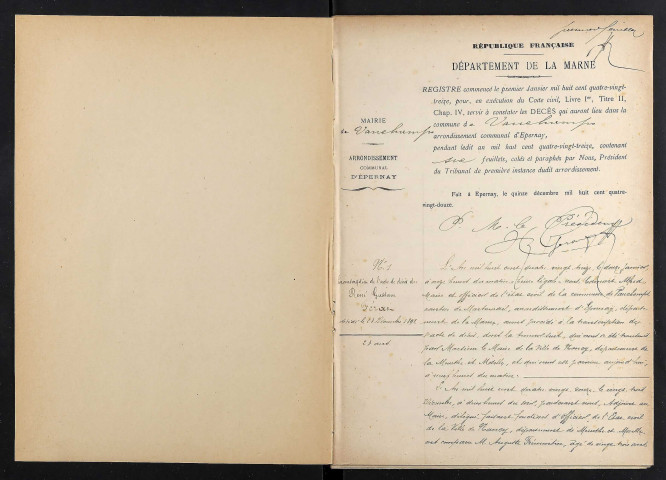 RÉPUBLIQUE FRANÇAISE
DÉPARTEMENT DE LA MARNE
REGISTRE commencé le premier Janvier mil huit cent quatre-vingt-
treize, pour, en exécution du Code civil, Livre Ier, Titre II,
Chap. IV, servir à constater les DÉCÈS qui auront lieu dans la
commune d
arrondissement communal d'Épernay,
pendant ledit an mil huit cent quatre-vingt-treize, contenant
six feuillets, cotés et paraphés par Nous, Président
du Tribunal de première instance dudit arrondissement.
Fait à Épernay, le quinze décembre mil huit cent quatre-
vingt-douze.
P. M. le Président
MAIRIE
de
ARRONDISSEMENT
COMMUNAL
D'ÉPERNAY
N° 1
transcription de l'acte de décès de
René Gustave
L'An mil huit cent quatre vingt treize, le douze janvier,
à onze heures du matin, Nous
Maire et officier de l'état civil de la commune de
canton de Montmirail, arrondissement d'Épernay, départe-
ment de la Marne, avons procédé à la transcription de
l'acte de décès, dont la teneur suit, qui nous a été transmis
par Monsieur le Maire de la Ville de Nancy, département de
la Meurthe et Moselle, et qui nous est parvenu aujourd'hui,
à onze heures du matin.
L'An mil huit cent quatre vingt onze, le vingt trois
Décembre, à dix heures du soir, par devant nous, Adjoint au
Maire, délégué, faisant fonctions d'officier de l'État civil
de la Ville de Nancy, département de Meurthe et Moselle
ont comparu M. Auguste âgé de vingt trois ans